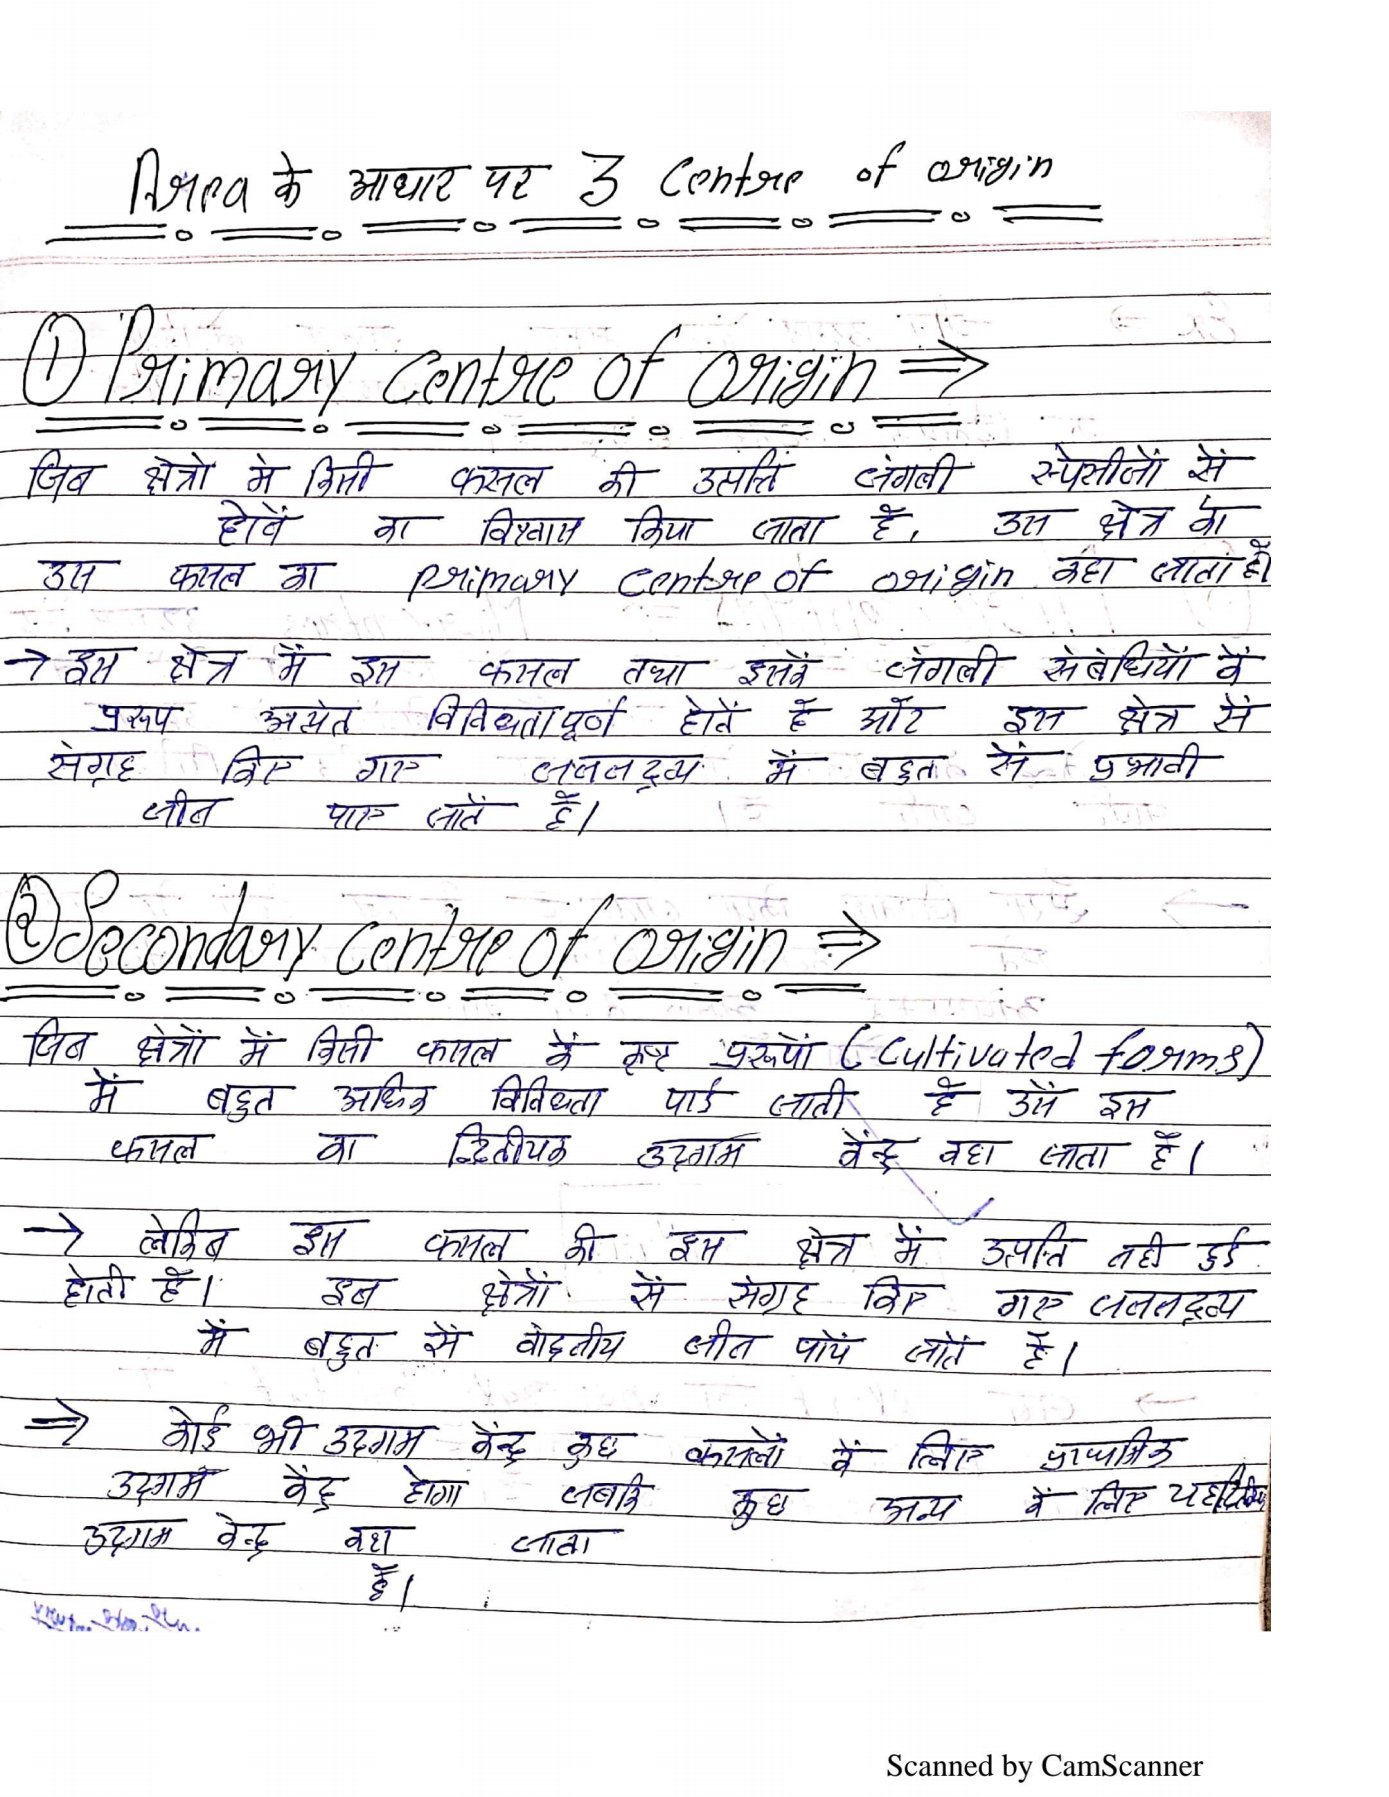 Area के आधार पर 3 Centre of origin
① Primary Centre of Origin ⇒
जिन क्षेत्रो मे किसी फसल की उत्पत्ति जंगली स्पेसीजों से
होनें का विश्वास किया जाता है, उस क्षेत्र को
उस फसल का Primary Centre of origin कहा जाता है।
→ इस क्षेत्र में इस फसल तथा इसकें जंगली संबंधियों कें
प्ररूप अत्यंत विविधतापूर्ण होतें है और इस क्षेत्र सें
संग्रह किए गए जननद्रव्य में बहुत सें प्रभावी
जीन पाए जातें है।
② Secondary Centre of Origin ⇒
जिन क्षेत्रों में किसी फसल कें कृष्ट प्ररूपों (Cultivated forms)
में बहुत अधिक विविधता पाई जाती है उसें इस
फसल का द्वितीयक उद्गाम केंन्द्र कहा जाता है।
→ लेकिन इस फसल की इस क्षेत्र में उत्पत्ति नही हुई
होती है। इन क्षेत्रों सें संग्रह किए गए जननद्रव्य
में बहुत सें जीन पायें जातें है।
⇒ कोई भी उदगम केंन्द्र कुछ फसलों कें लिए प्राथमिक
उदगम केंद्र होगा जबकि कुछ अन्य कें लिए यह
उदगाम केन्द्र कहा जाता
है।
Scanned by CamScanner